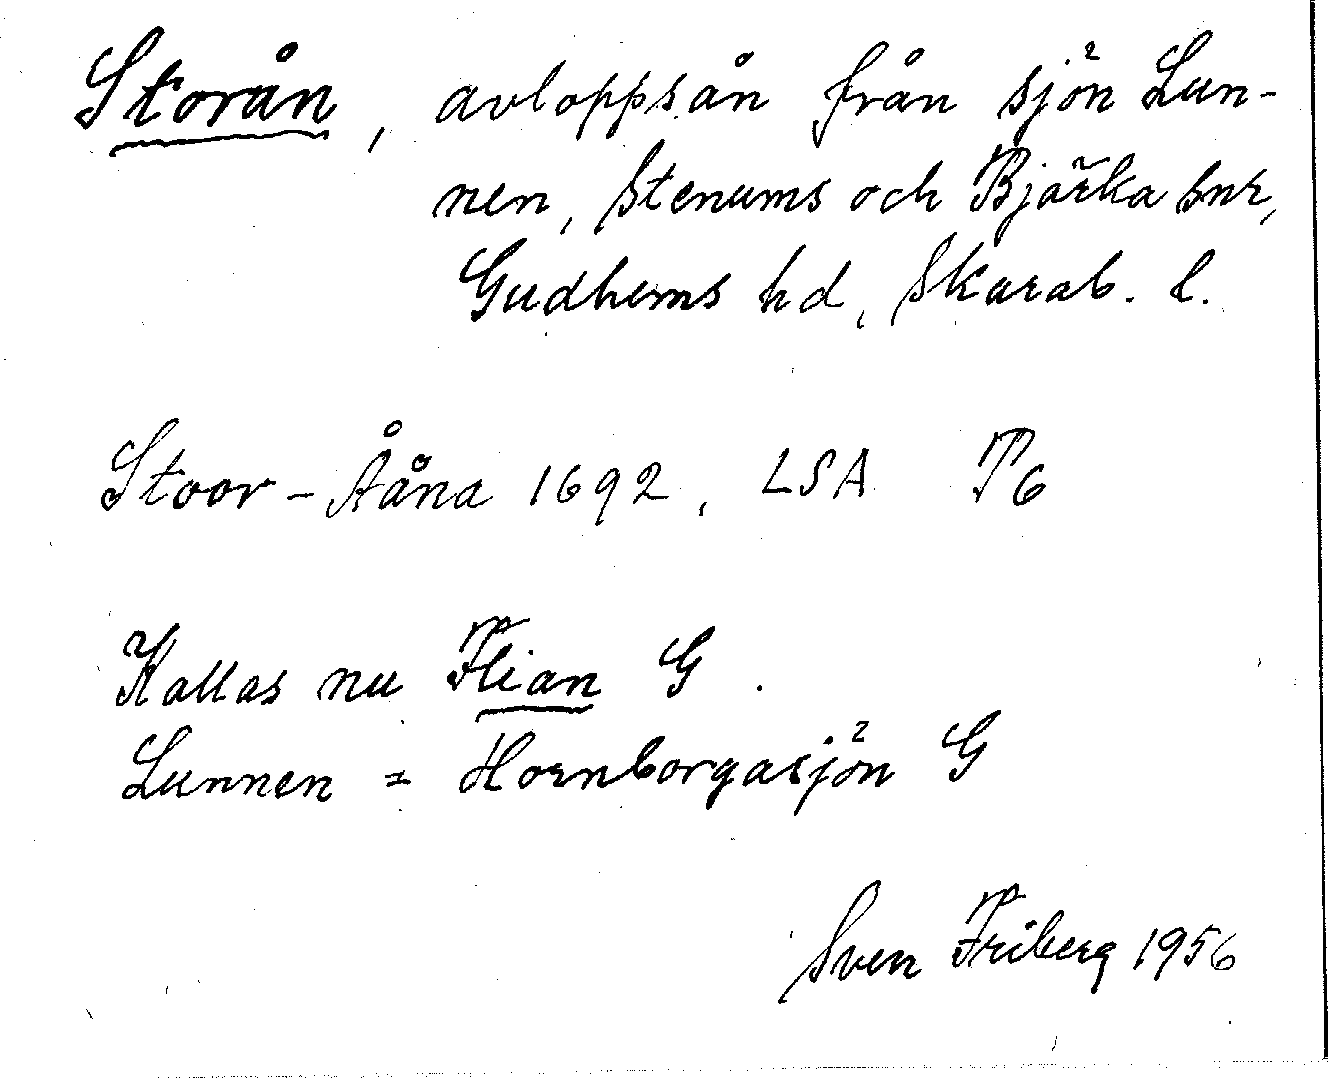 Storån, avloppsån från sjön Lun-
nen, Stenums och Bjärka snr,
Gudhems hd, Skarab. l.
Stoor-Ååna 1692, LSA P6
Kallas nu Flian G.
Lunnen = Hornborgasjön G
Sven Friberg 1956